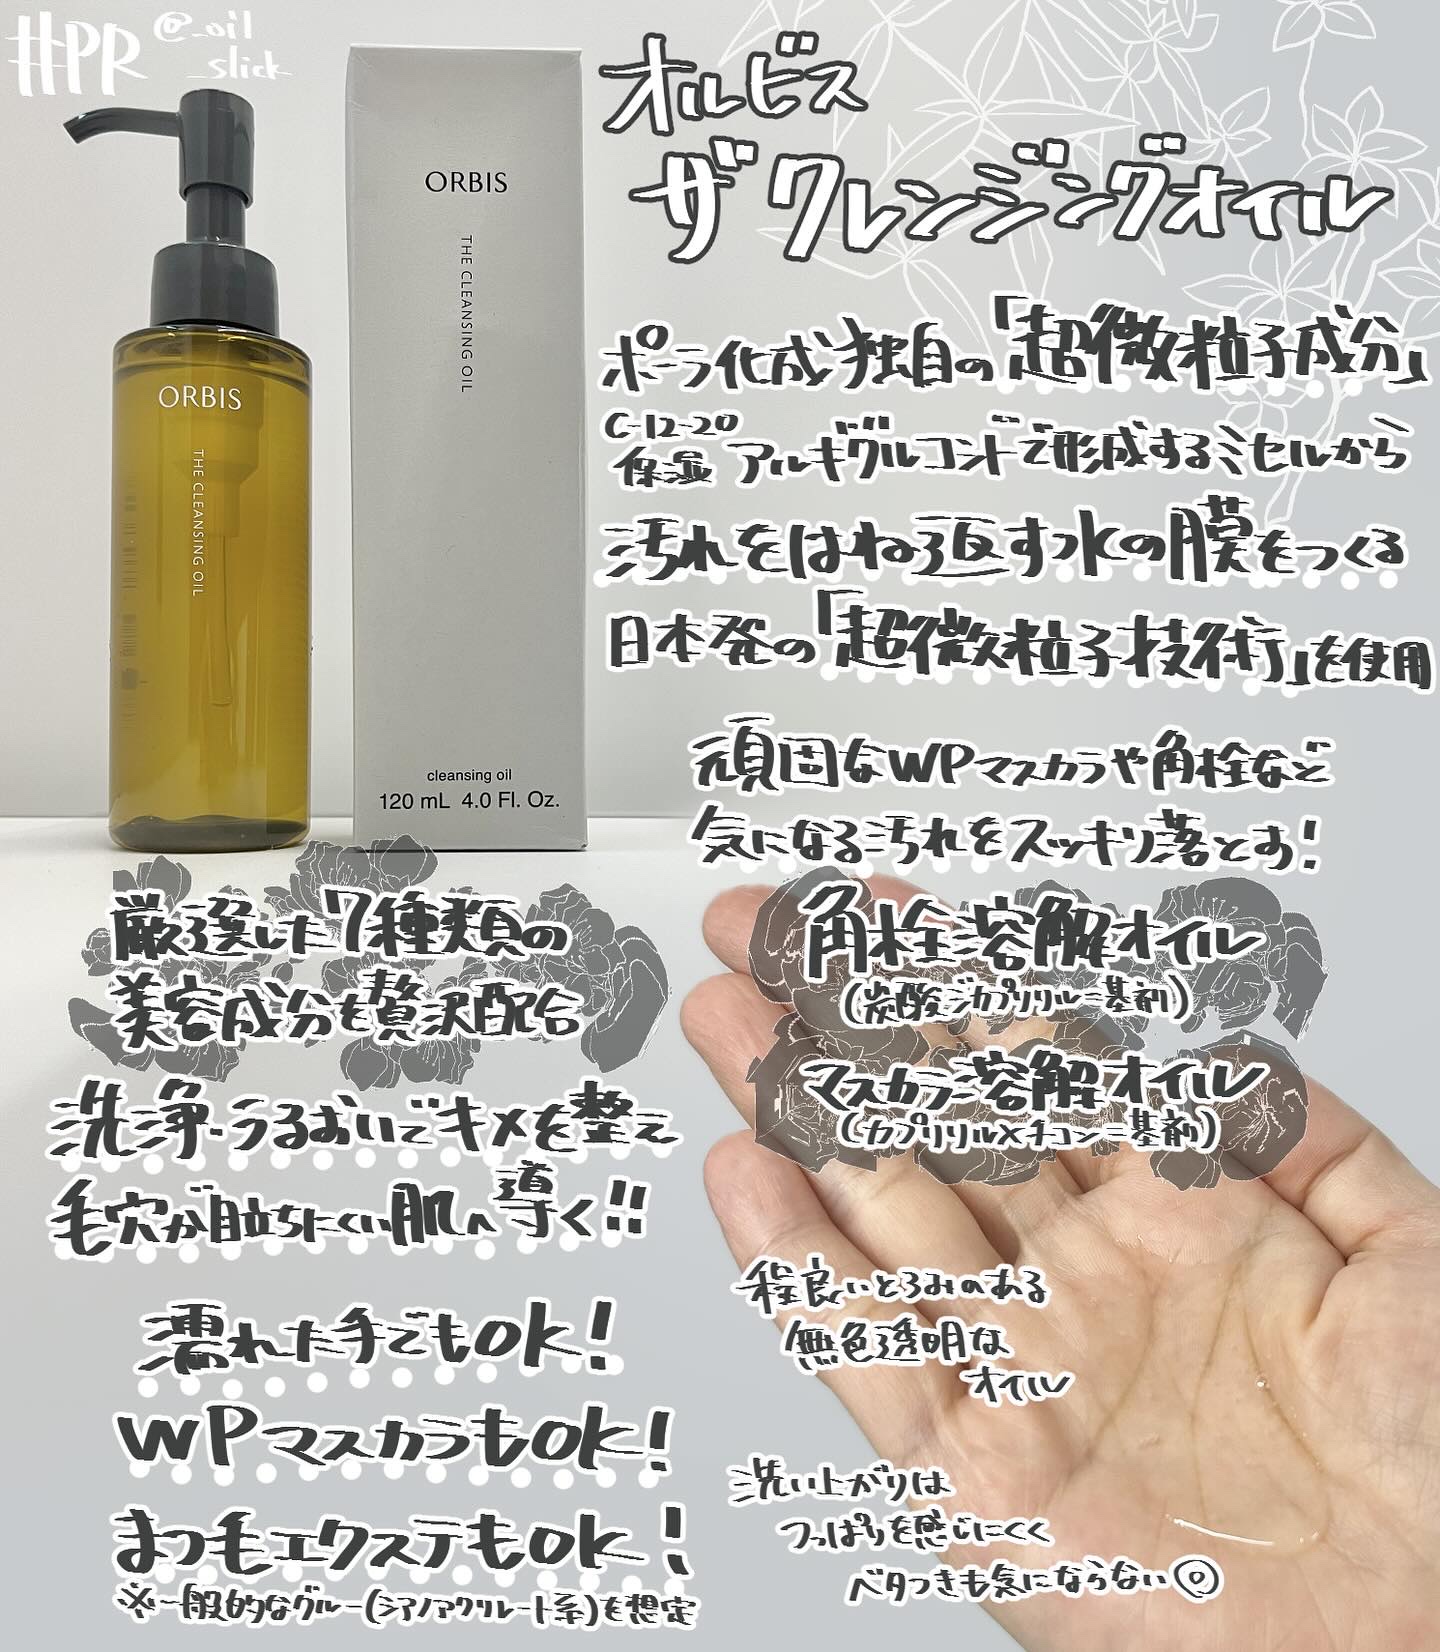 #PR @_oil
_slick
オルビス
ザ クレンジングオイル
ORBIS
THE CLEANSING OIL
cleansing oil
120 mL 4.0 Fl. Oz.
ORBIS
THE CLEANSING OIL
ポーラ化成独自の「超微粒子成分」
C-12-20
保湿 アルギグルコシドで形成するミセルから
汚れをはね返す水の膜をつくる
日本発の「超微粒子技術」を使用
頑固なWPマスカラや角栓など
気になる汚れをスッキリ落とす!
角栓溶解オイル
(炭酸ジカプリリル=基剤)
マスカラ溶解オイル
(カプリリルメチコン=基剤)
厳選した7種類の
美容成分を贅沢配合
洗浄・うるおいでキメを整え
毛穴が目立ちにくい肌へ導く!!
濡れた手でもok!
WPマスカラもok!
まつ毛エクステもok!
※一般的なグルー(シアノアクリレート系)を想定
程良いとろみのある
無色透明な
オイル
洗い上がりは
つっぱりを感じにくく
ベタつきも気にならない◎